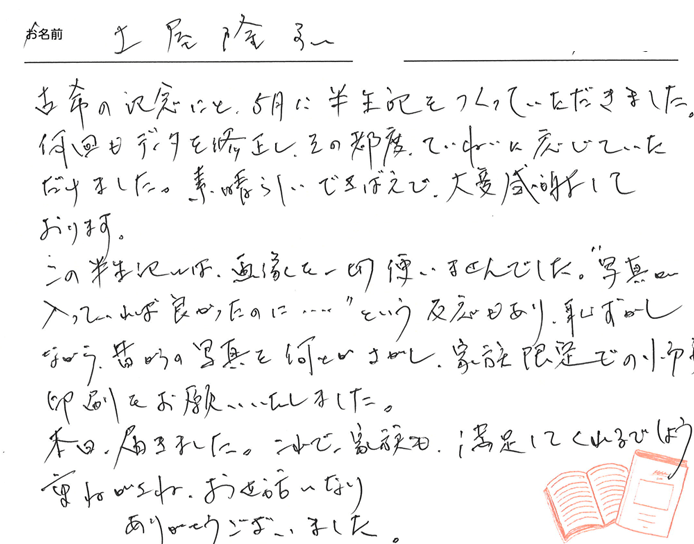 お名前 土屋隆
古希の記念にと、5月に半生記をつくっていただきました。
何回もデータを修正し、その都度、ていねいに応じていた
だけました。素晴らしいできばえで、大変感謝して
おります。
この半生記には、画像を一切使いませんでした。"写真が
入っていれば良かったのに……"という反応もあり、恥ずかし
ながら、昔の写真を何とかさがし、家族限定での小部
印刷をお願いいたしました。
本日、届きました。これで、家族も、満足してくれるでしょう
重ねがさね、お世話になり
ありがとうございました。